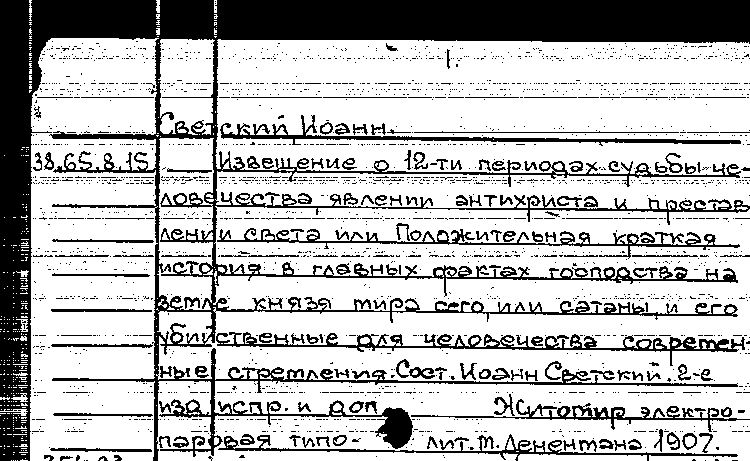 1.
Светский Иоанн.
38.65.8.15 Извещение о 12-ти периодах судьбы че-
ловечества, явлении антихриста и престав
лении света, или Положительная краткая
история в главных фактах господства на
земле князя мира сего, или сатаны, и его
убийственные для человечества современ-
ные стремления. Сост. Иоанн Светский. 2-е
изд. испр. и доп. Житомир, электро-
паровая типо- лит. М. Дененмана, 1907.